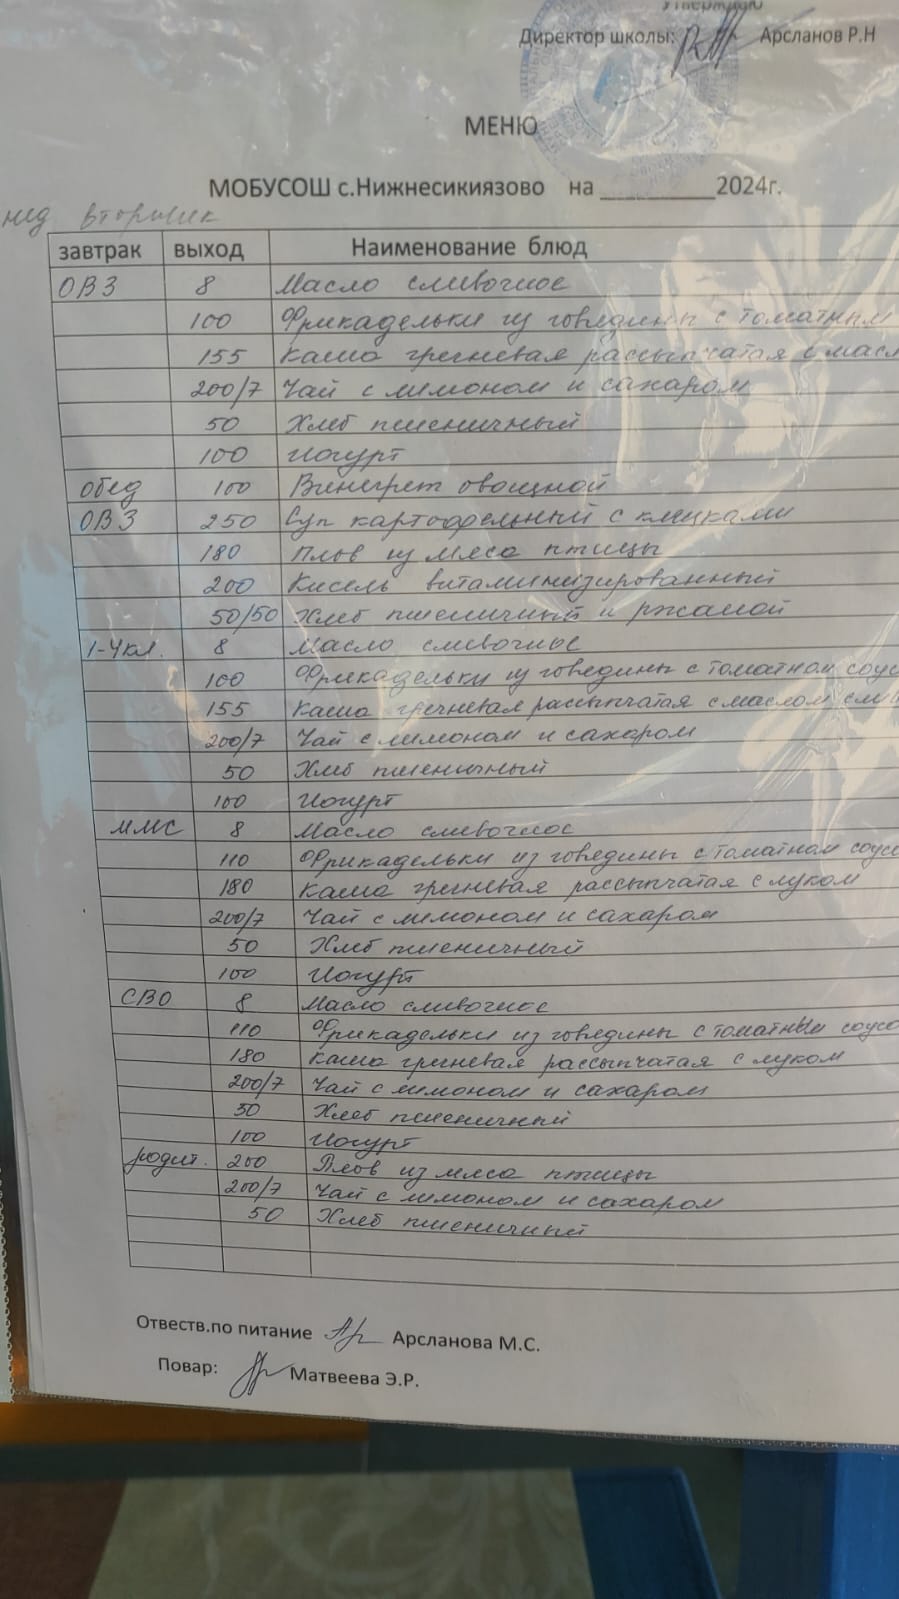 Утверждаю
Директор школы: Арсланов Р.Н
МЕНЮ
МОБУСОШ с.Нижнесикиязово на __________ 2024г.
нед вторник
завтрак выход Наименование блюд
ОВЗ 8 Масло сливочное
100 Фрикадельки из говядины с томатным
155 Каша гречневая рассыпчатая с масл
200/7 Чай с лимоном и сахаром
50 Хлеб пшеничный
100 Йогурт
Обед 100 Винегрет овощной
ОВЗ 250 Суп картофельный с клецками
180 Плов из мяса птицы
200 Кисель витаминизированный
50/50 Хлеб пшеничный и ржаной
1-4кл. 8 Масло сливочное
100 Фрикадельки из говядины с томатном соус
155 Каша гречневая рассыпчатая с маслом сли
200/7 Чай с лимоном и сахаром
50 Хлеб пшеничный
100 Йогурт
ММС 8 Масло сливочное
110 Фрикадельки из говядины с томатном соусо
180 Каша гречневая рассыпчатая с луком
200/7 Чай с лимоном и сахаром
50 Хлеб пшеничный
100 Йогурт
СВО 8 Масло сливочное
110 Фрикадельки из говядины с томатным соусо
180 Каша гречневая рассыпчатая с луком
200/7 Чай с лимоном и сахаром
50 Хлеб пшеничный
100 Йогурт
родит. 200 Плов из мяса птицы
200/7 Чай с лимоном и сахаром
50 Хлеб пшеничный
Отвеств.по питание Арсланова М.С.
Повар: Матвеева Э.Р.